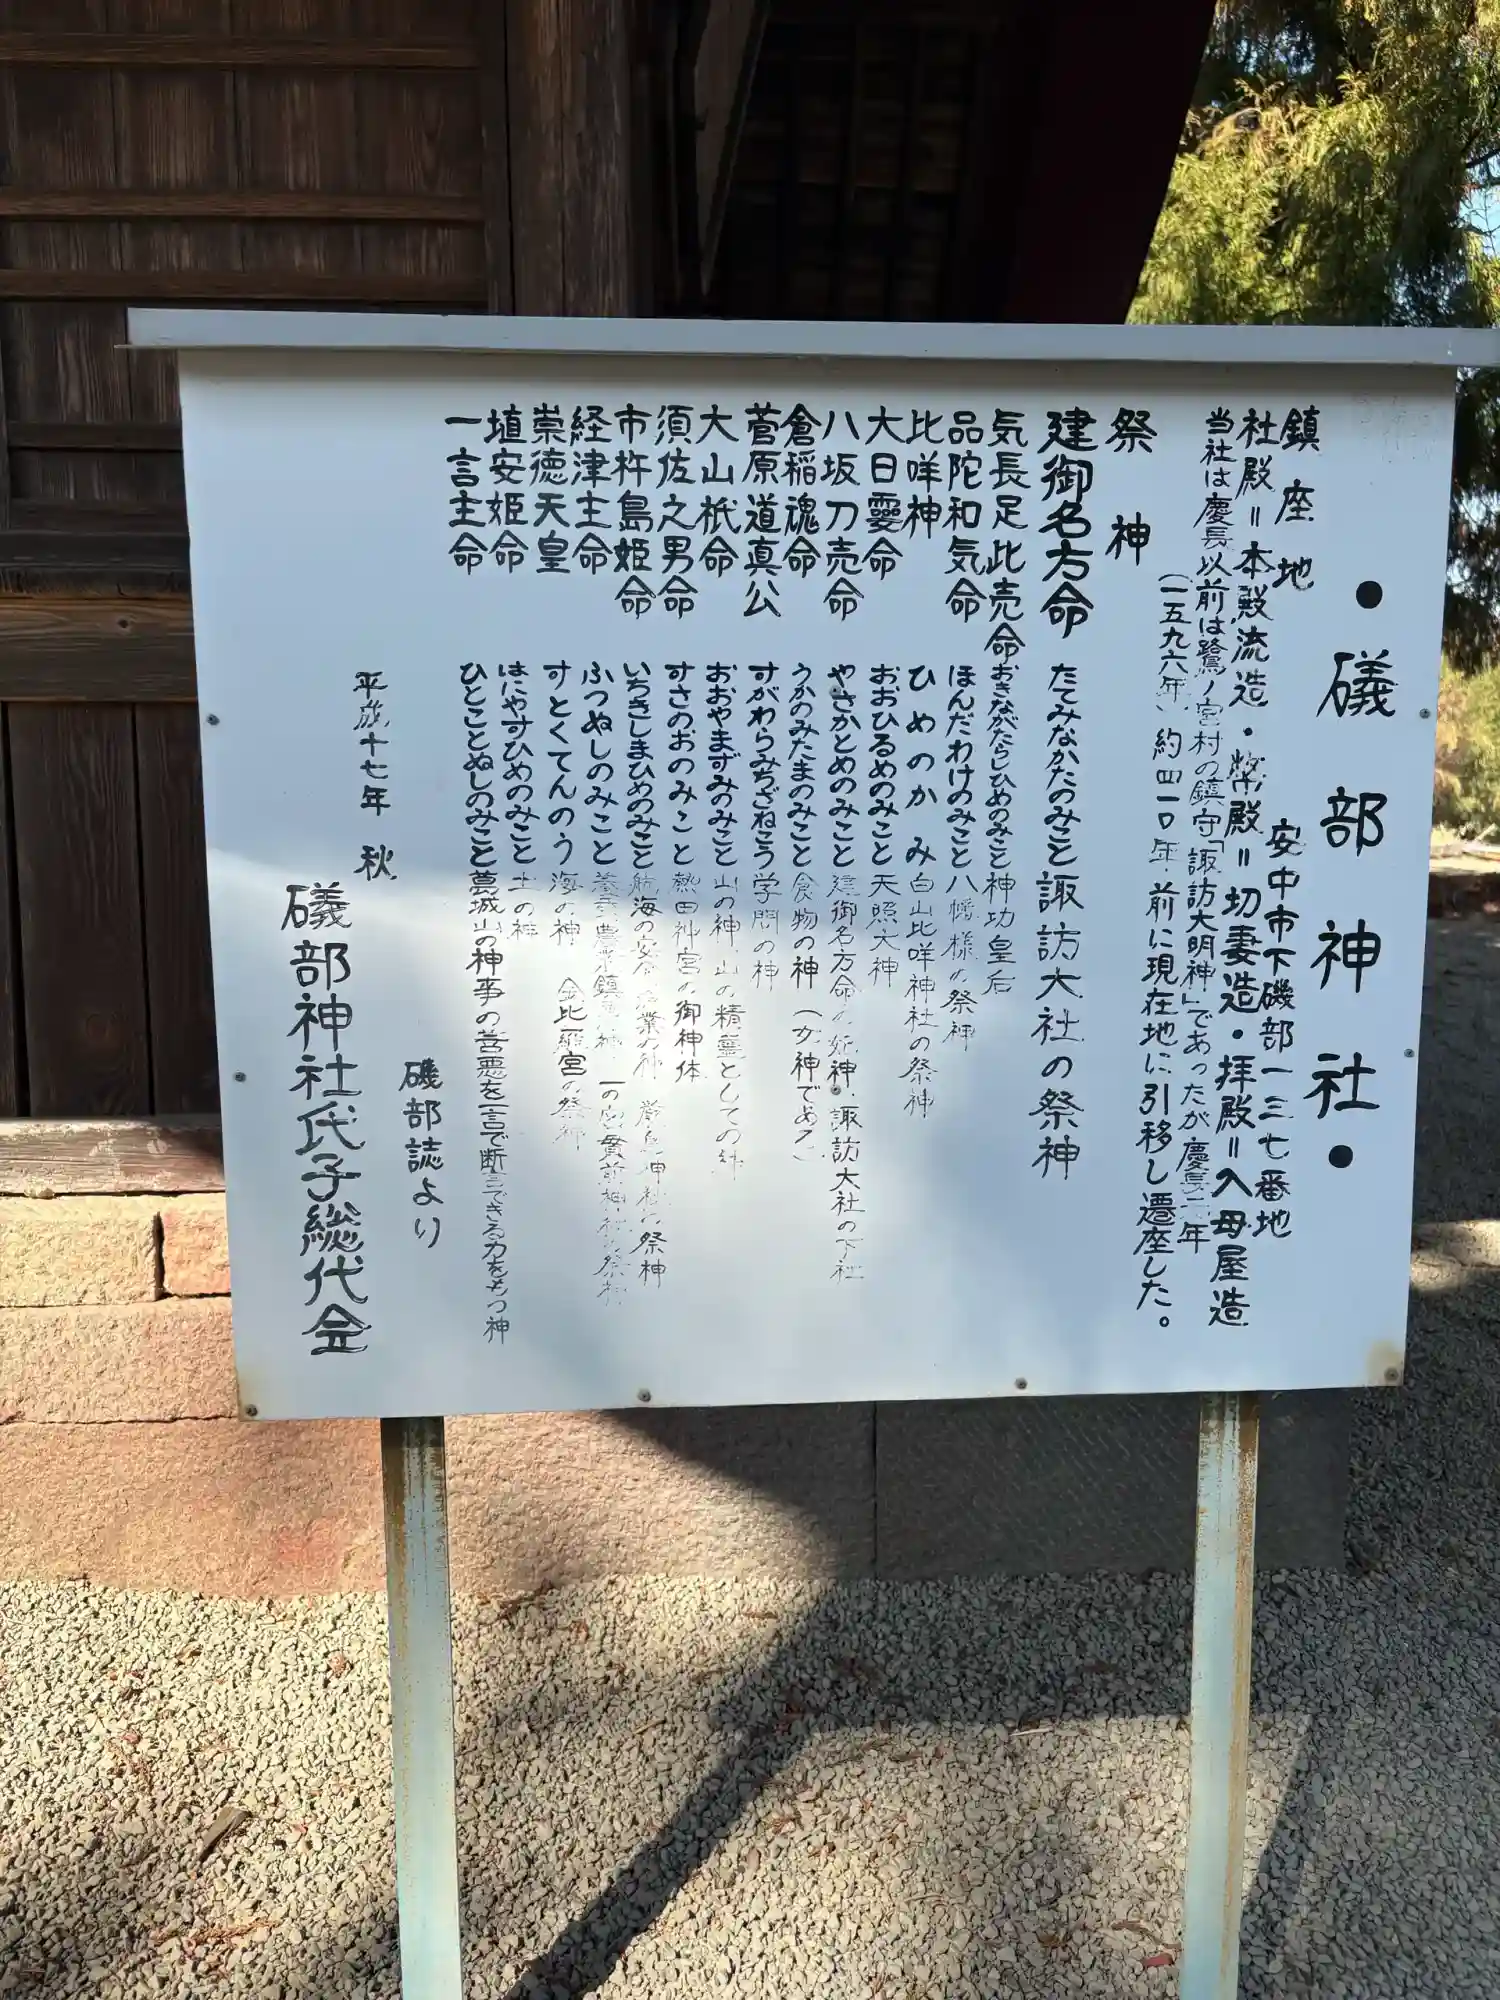 ・礒部神社・
鎮座地 安中市下磯部一三七番地
社殿=本殿流造・幣殿=切妻造・拝殿=入母屋造
当社は慶長以前は鷺ノ宮村の鎮守「諏訪大明神」であったが慶長元年
(一五九六年)約四一〇年前に現在地に引移し遷座した。
祭神
建御名方命 たてみなかたのみこと 諏訪大社の祭神
気長足比売命 おきながたらしひめのみこと 神功皇后
品陀和気命 ほんだわけのみこと 八幡様の祭神
比咩神 ひめのかみ 白山比咩神社の祭神
大日孁命 おおひるめのみこと 天照大神
八坂刀売命 やさかとめのみこと 建御名方命の妃神 諏訪大社の下社
倉稲魂命 うかのみたまのみこと 食物の神(女神である)
菅原道真公 すがわらみちざねこう 学問の神
大山祇命 おおやまずみのみこと 山の神、山の精霊としての神
須佐之男命 すさのおのみこと 熱田神宮の御神体
市杵島姫命 いちきしまひめのみこと 航海の安 業の神 厳島神社の祭神
経津主命 ふつぬしのみこと 養蚕農業鎮 神、一の宮貫前神社の祭神
崇徳天皇 すとくてんのう 海の神 金比羅宮の祭神
埴安姫命 はにやすひめのみこと 土の神
一言主命 ひとことぬしのみこと 葛城山の神事の善悪を一言で断言できる力をもつ神
磯部誌より
平成十七年 秋
礒部神社氏子総代会